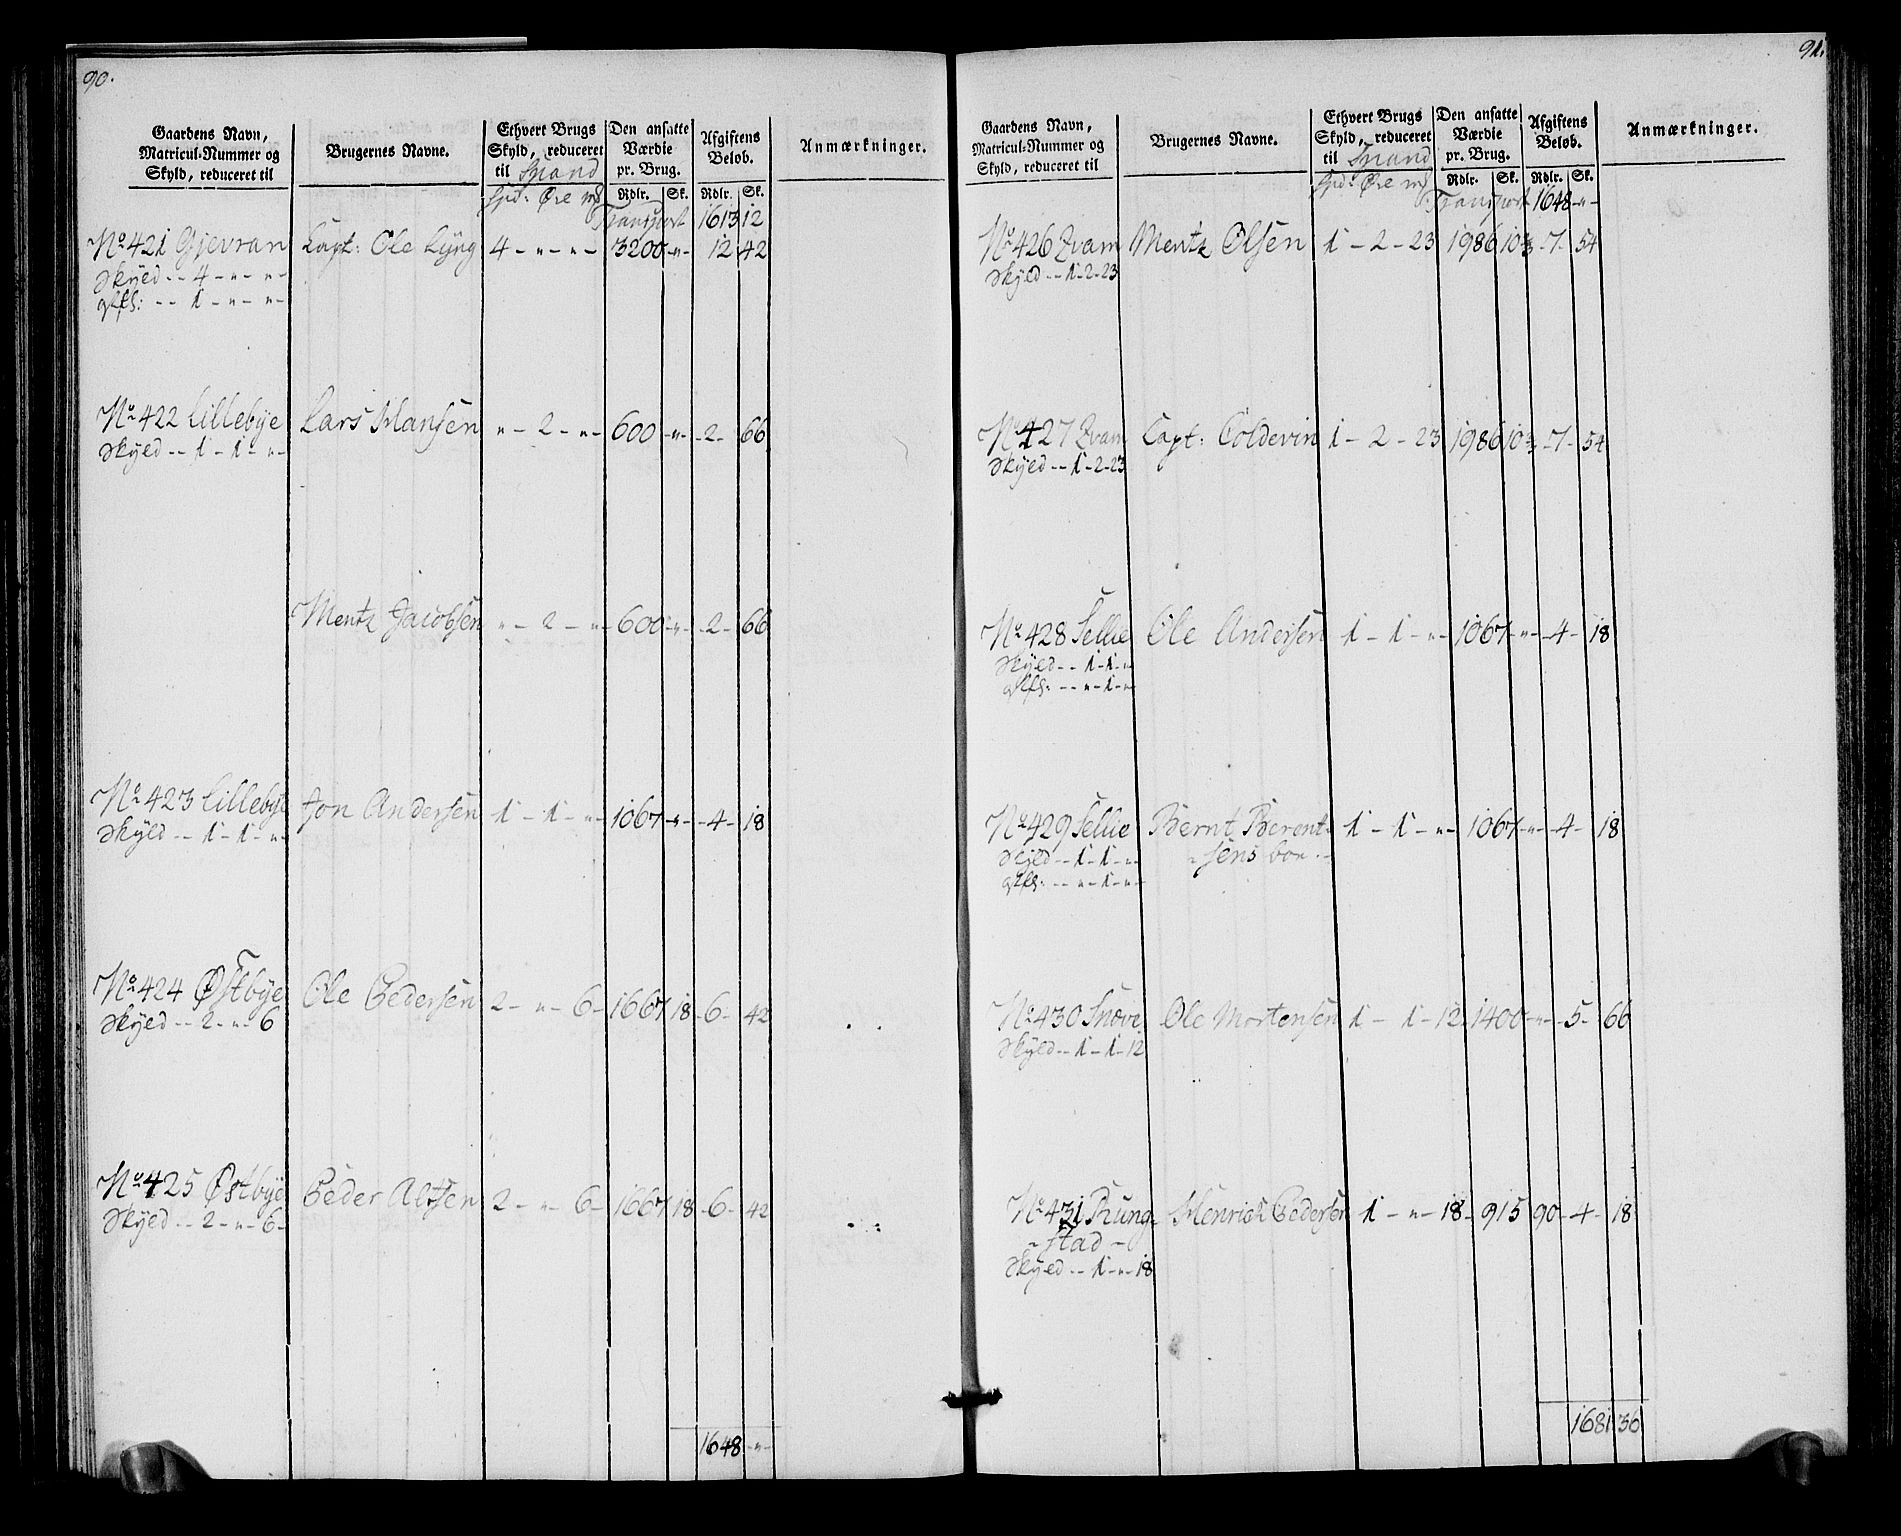 90.
Gaardens Navn, Matricul-Nummer og Skyld, reduceret til
Brugernes Navne.
Ethvert Brugs Skyld, reduceret til Spand
Den ansatte Værdie pr. Brug.
Afgiftens Beløb.
Anmærkninger.
Spd: Øre mk
Rdlr. Sk. Rdlr. Sk.
Transport 1613 12
No 421 Gjevran Capt: Ole Lyng 4 - " - " - 3200 -"- 12 42
Skyld - - 4 - " - " -
 - - 1 - " - " -
No 422 Lillebye Lars Hansen " - 2 - " - 600 -"- -2- 66
Skyld - - 1 - 1 - " -
Mentz Jacobsen " - 2 - " - 600 -"- -2- 66
No 423 Lillebye Jon Andersen 1 - 1 - " - 1067 -"- -4- 18
Skyld - - 1 - 1 - " -
No 424 Østbye Ole Pedersen 2 - " - 6 - 1667 18 -6- 42
Skyld - - 2 - " - 6
No 425 Østbye Peder Altsen 2 - " - 6 - 1667 18 -6- 42
Skyld - - 2 - " - 6 -
1648 -"-
91.
Gaardens Navn, Matricul-Nummer og Skyld, reduceret til
Brugernes Navne.
Ethvert Brugs Skyld, reduceret til Spand
Den ansatte Værdie pr. Brug.
Afgiftens Beløb.
Anmærkninger.
Spd: Øre mk
Rdlr. Sk. Rdlr. Sk.
Transport 1648 -"-
No 426 Qvam Mentz Olsen 1 - 2 - 23 1986 10⅔ -7- 54
Skyld - - 1 - 2 - 23
No 427 Qvam Capt: Coldevin 1 - 2 - 23 1986 10⅔ -7- 54
Skyld - - 1 - 2 - 23
No 428 Sellie Ole Andersen 1 - 1 - " - 1067 -"- -4- 18
Skyld - - 1 - 1 - "
 - - " - 1 - "
No 429 Sellie Bernt Berent- 1 - 1 - " - 1067 -"- -4- 18
Skyld - - 1 - 1 - " - - sens boe. -
 - - " - 1 - " -
No 430 Snøve Ole Mortensen 1 - 1 - 12 1400 -"- -5- 66
Skyld - - 1 - 1 - 12
No 431 Rung- Henrich Pedersen 1 - " - 18 - 915 90 -4- 18
- stad -
Skyld - - 1 - " - 18
1681 36